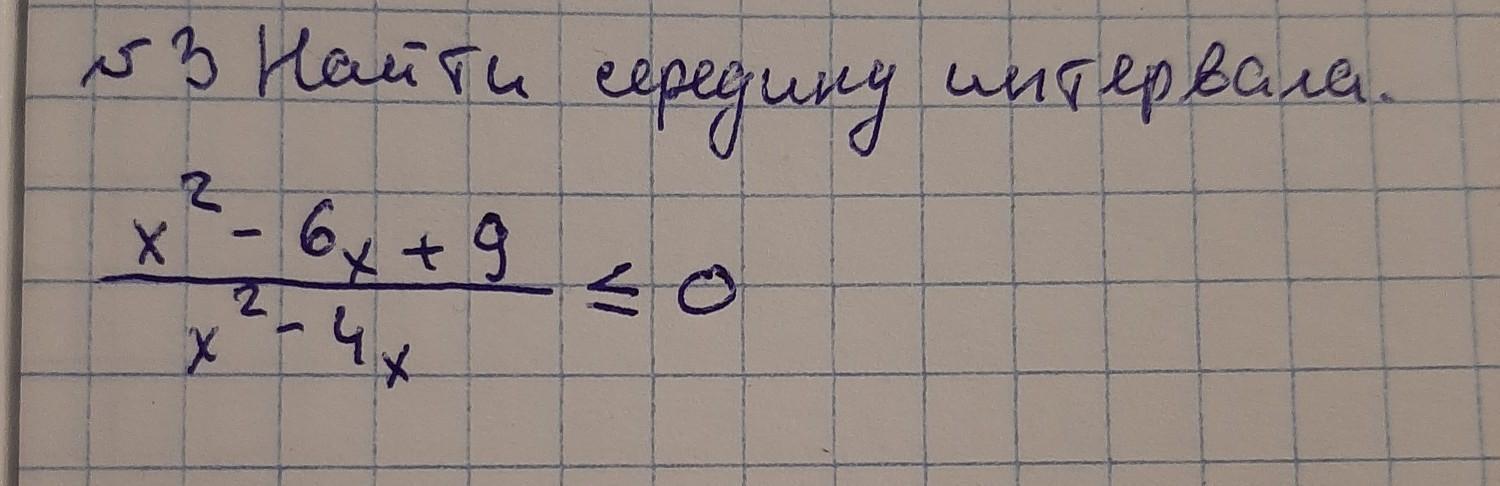 №3 Найти середину интервала.
x² - 6x + 9
x² - 4x
≤ 0